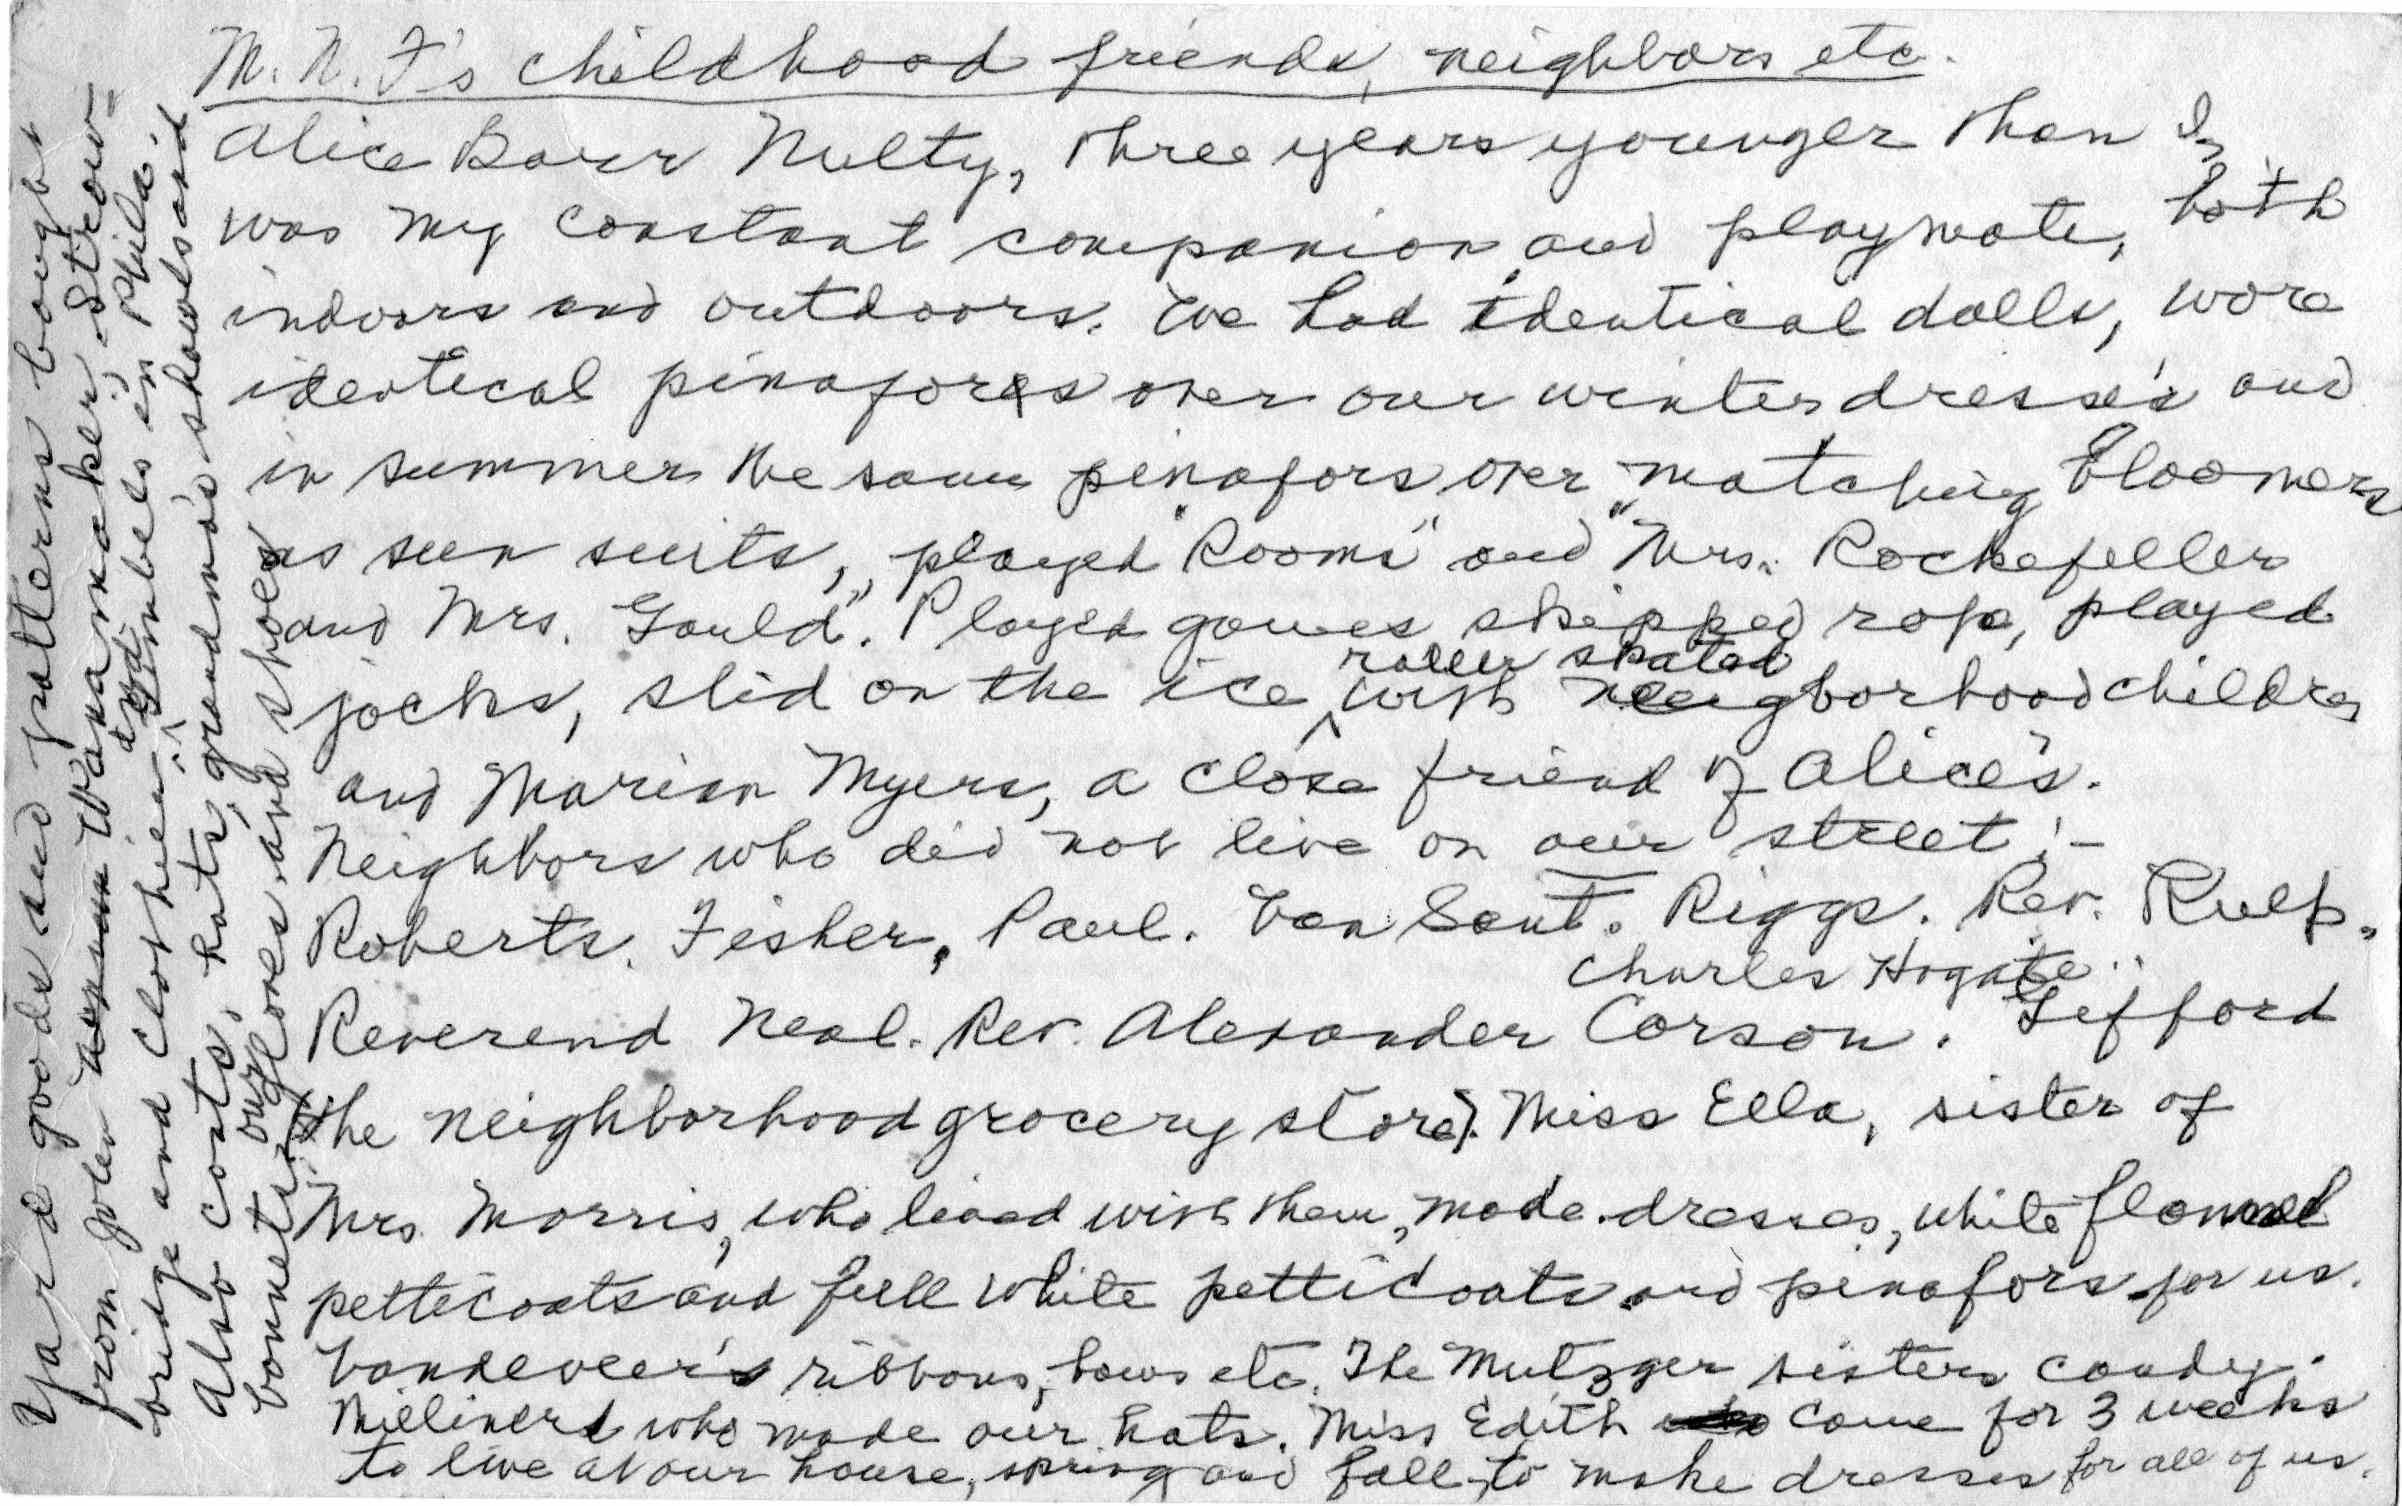 M. N. F's childhood friends, neighbors etc.
Alice Barr Nulty, three years younger than I,
was my constant companion and playmate, both
indoors and outdoors. We had identical dolls, wore
identical pinafores over our winter dresses and
in summer the same pinafors over matching bloomers
as sun suits, played "Rooms" and "Mrs. Rockefeller
and Mrs. Gould". Played games skipped rope, played
roller skated
jacks, slid on the ice ^ with neighborhood children
and Marian Myers, a close friend of Alice's.
Neighbors who did not live on our street:-
Roberts. Fisher, Paul. Van Sant. Riggs. Rev. Kulp.
Charles Hogate..
Reverend Neal. Rev. Alexander Corson. Gifford
(the neighborhood grocery store). Miss Ella, sister of
Mrs. Morris, who lived with them, made dresses, white flannel
petticoats and full white petticoats and pinafors for us.
Vandeveer's ribbons, bows etc. The Mutzger sisters candy.
Milliners who made our hats. Miss Edith came for 3 weeks
to live at our house, spring and fall, to make dresses for all of us.
Yard goods and patterns bought
from John Wanamaker, Straw-
bridge and Clothier and Gimbels in Phila.
Also coats, hats, grandma's shawls and
bonnets, our gloves and shoes